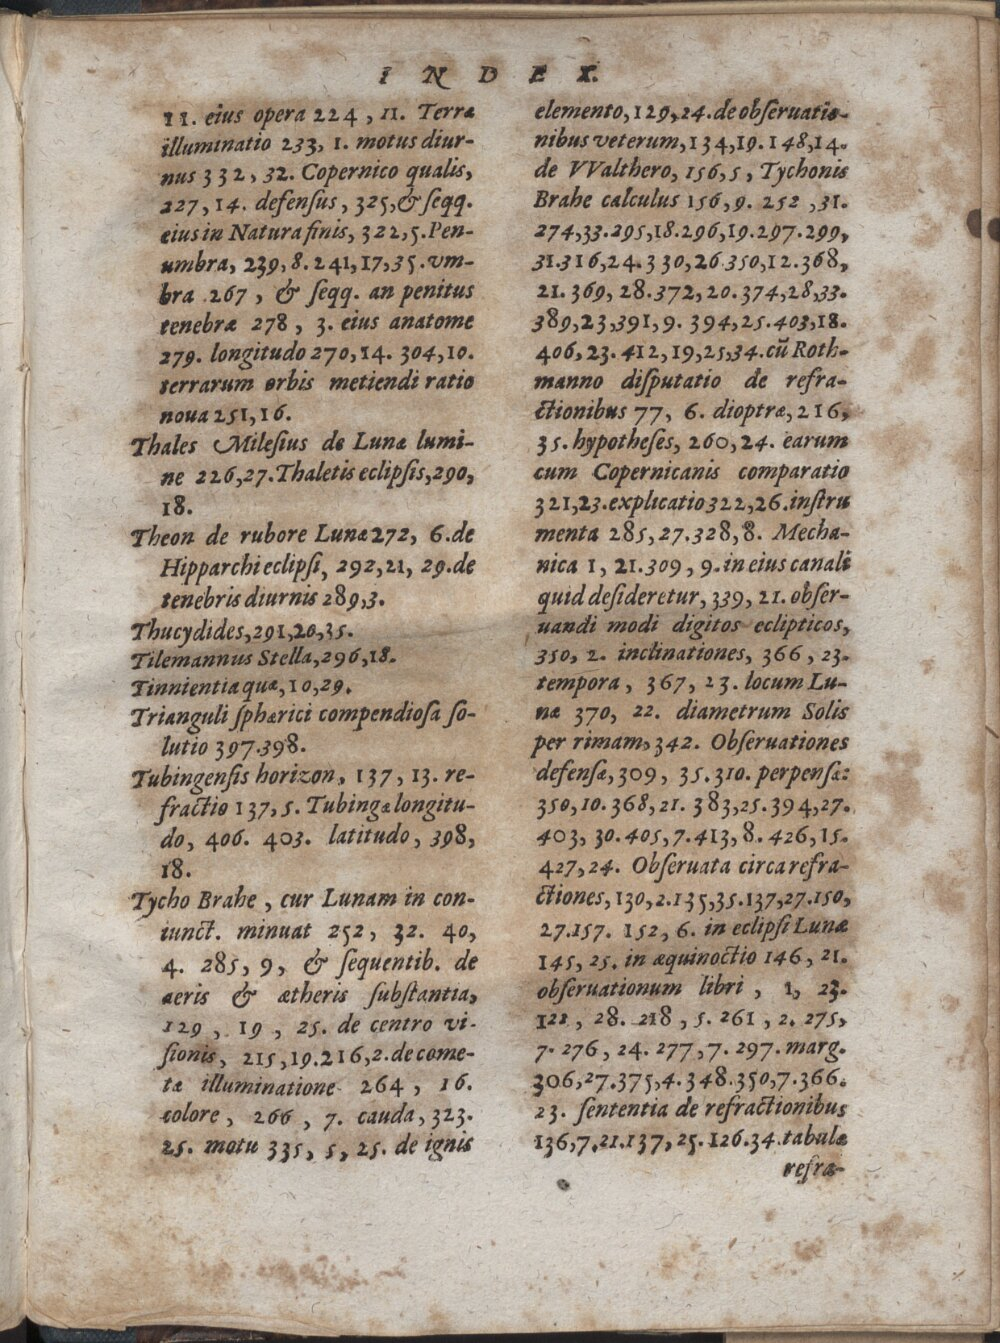 INDEX.
11. eius opera 224, 11. Terræ
illuminatio 233, 1. motus diur-
nus 332, 32. Copernico qualis,
227, 14. defenſus, 325, & ſeqq.
eius in Natura finis, 322, 5. Pen-
umbra, 239, 8. 241, 17, 35. vm-
bra 267, & ſeqq. an penitus
tenebræ 278, 3. eius anatome
279. longitudo 270, 14. 304, 10.
terrarum orbis metiendi ratio
noua 251, 16.
Thales Mileſius de Lunæ lumi-
ne 226, 27. Thaletis eclipſis, 290,
18.
Theon de rubore Lunæ 272, 6. de
Hipparchi eclipſi, 292, 21, 29. de
tenebris diurnis 289, 3.
Thucydides, 291, 20, 35.
Tilemannus Stella, 296, 18.
Tinnientia quæ, 10, 29.
Trianguli ſphærici compendioſa ſo-
lutio 397. 398.
Tubingenſis horizon, 137, 13. re-
fractio 137, 5. Tubingæ longitu-
do, 406. 403. latitudo, 398,
18.
Tycho Brahe, cur Lunam in con-
iunct. minuat 252, 32. 40,
4. 285, 9, & ſequentib. de
aeris & ætheris ſubſtantia,
129, 19, 25. de centro vi-
ſionis, 215, 19. 216, 2. de come-
tæ illuminatione 264, 16.
colore, 266, 7. cauda, 323.
25. motu 335, 5, 25. de ignis
elemento, 129, 24. de obſeruatio-
nibus veterum, 134, 19. 148, 14.
de VValthero, 156, 5, Tychonis
Brahe calculus 156, 9. 252, 31.
274, 33. 295, 18. 296, 19. 297. 299,
31. 316, 24. 330, 26. 350, 12. 368,
21. 369, 28. 372, 20. 374, 28, 33.
389, 23, 391, 9. 394, 25. 403, 18.
406, 23. 412, 19, 25, 34. cū Roth-
manno diſputatio de refra-
ctionibus 77, 6. dioptræ, 216,
35. hypotheſes, 260, 24. earum
cum Copernicanis comparatio
321, 23. explicatio 322, 26. inſtru
menta 285, 27. 328, 8. Mecha-
nica 1, 21. 309, 9. in eius canali
quid deſideretur, 339, 21. obſer-
uandi modi digitos eclipticos,
350, 2. inclinationes, 366, 23.
tempora, 367, 23. locum Lu-
næ 370, 22. diametrum Solis
per rimam, 342. Obſeruationes
defenſæ, 309, 35. 310. perpenſæ:
350, 10. 368, 21. 383, 25. 394, 27.
403, 30. 405, 7. 413, 8. 426, 15.
427, 24. Obſeruata circa refra-
ctiones, 130, 2. 135, 35. 137, 27. 150,
27. 157. 152, 6. in eclipſi Lunæ
145, 25. in æquinoctio 146, 21.
obſeruationum libri, 1, 23.
122, 28. 218, 5. 261, 2. 275,
7. 276, 24. 277, 7. 297. marg.
306, 27. 375, 4. 348. 350, 7. 366.
23. ſententia de refractionibus
136, 7, 21. 137, 25. 126. 34. tabulæ
refra-